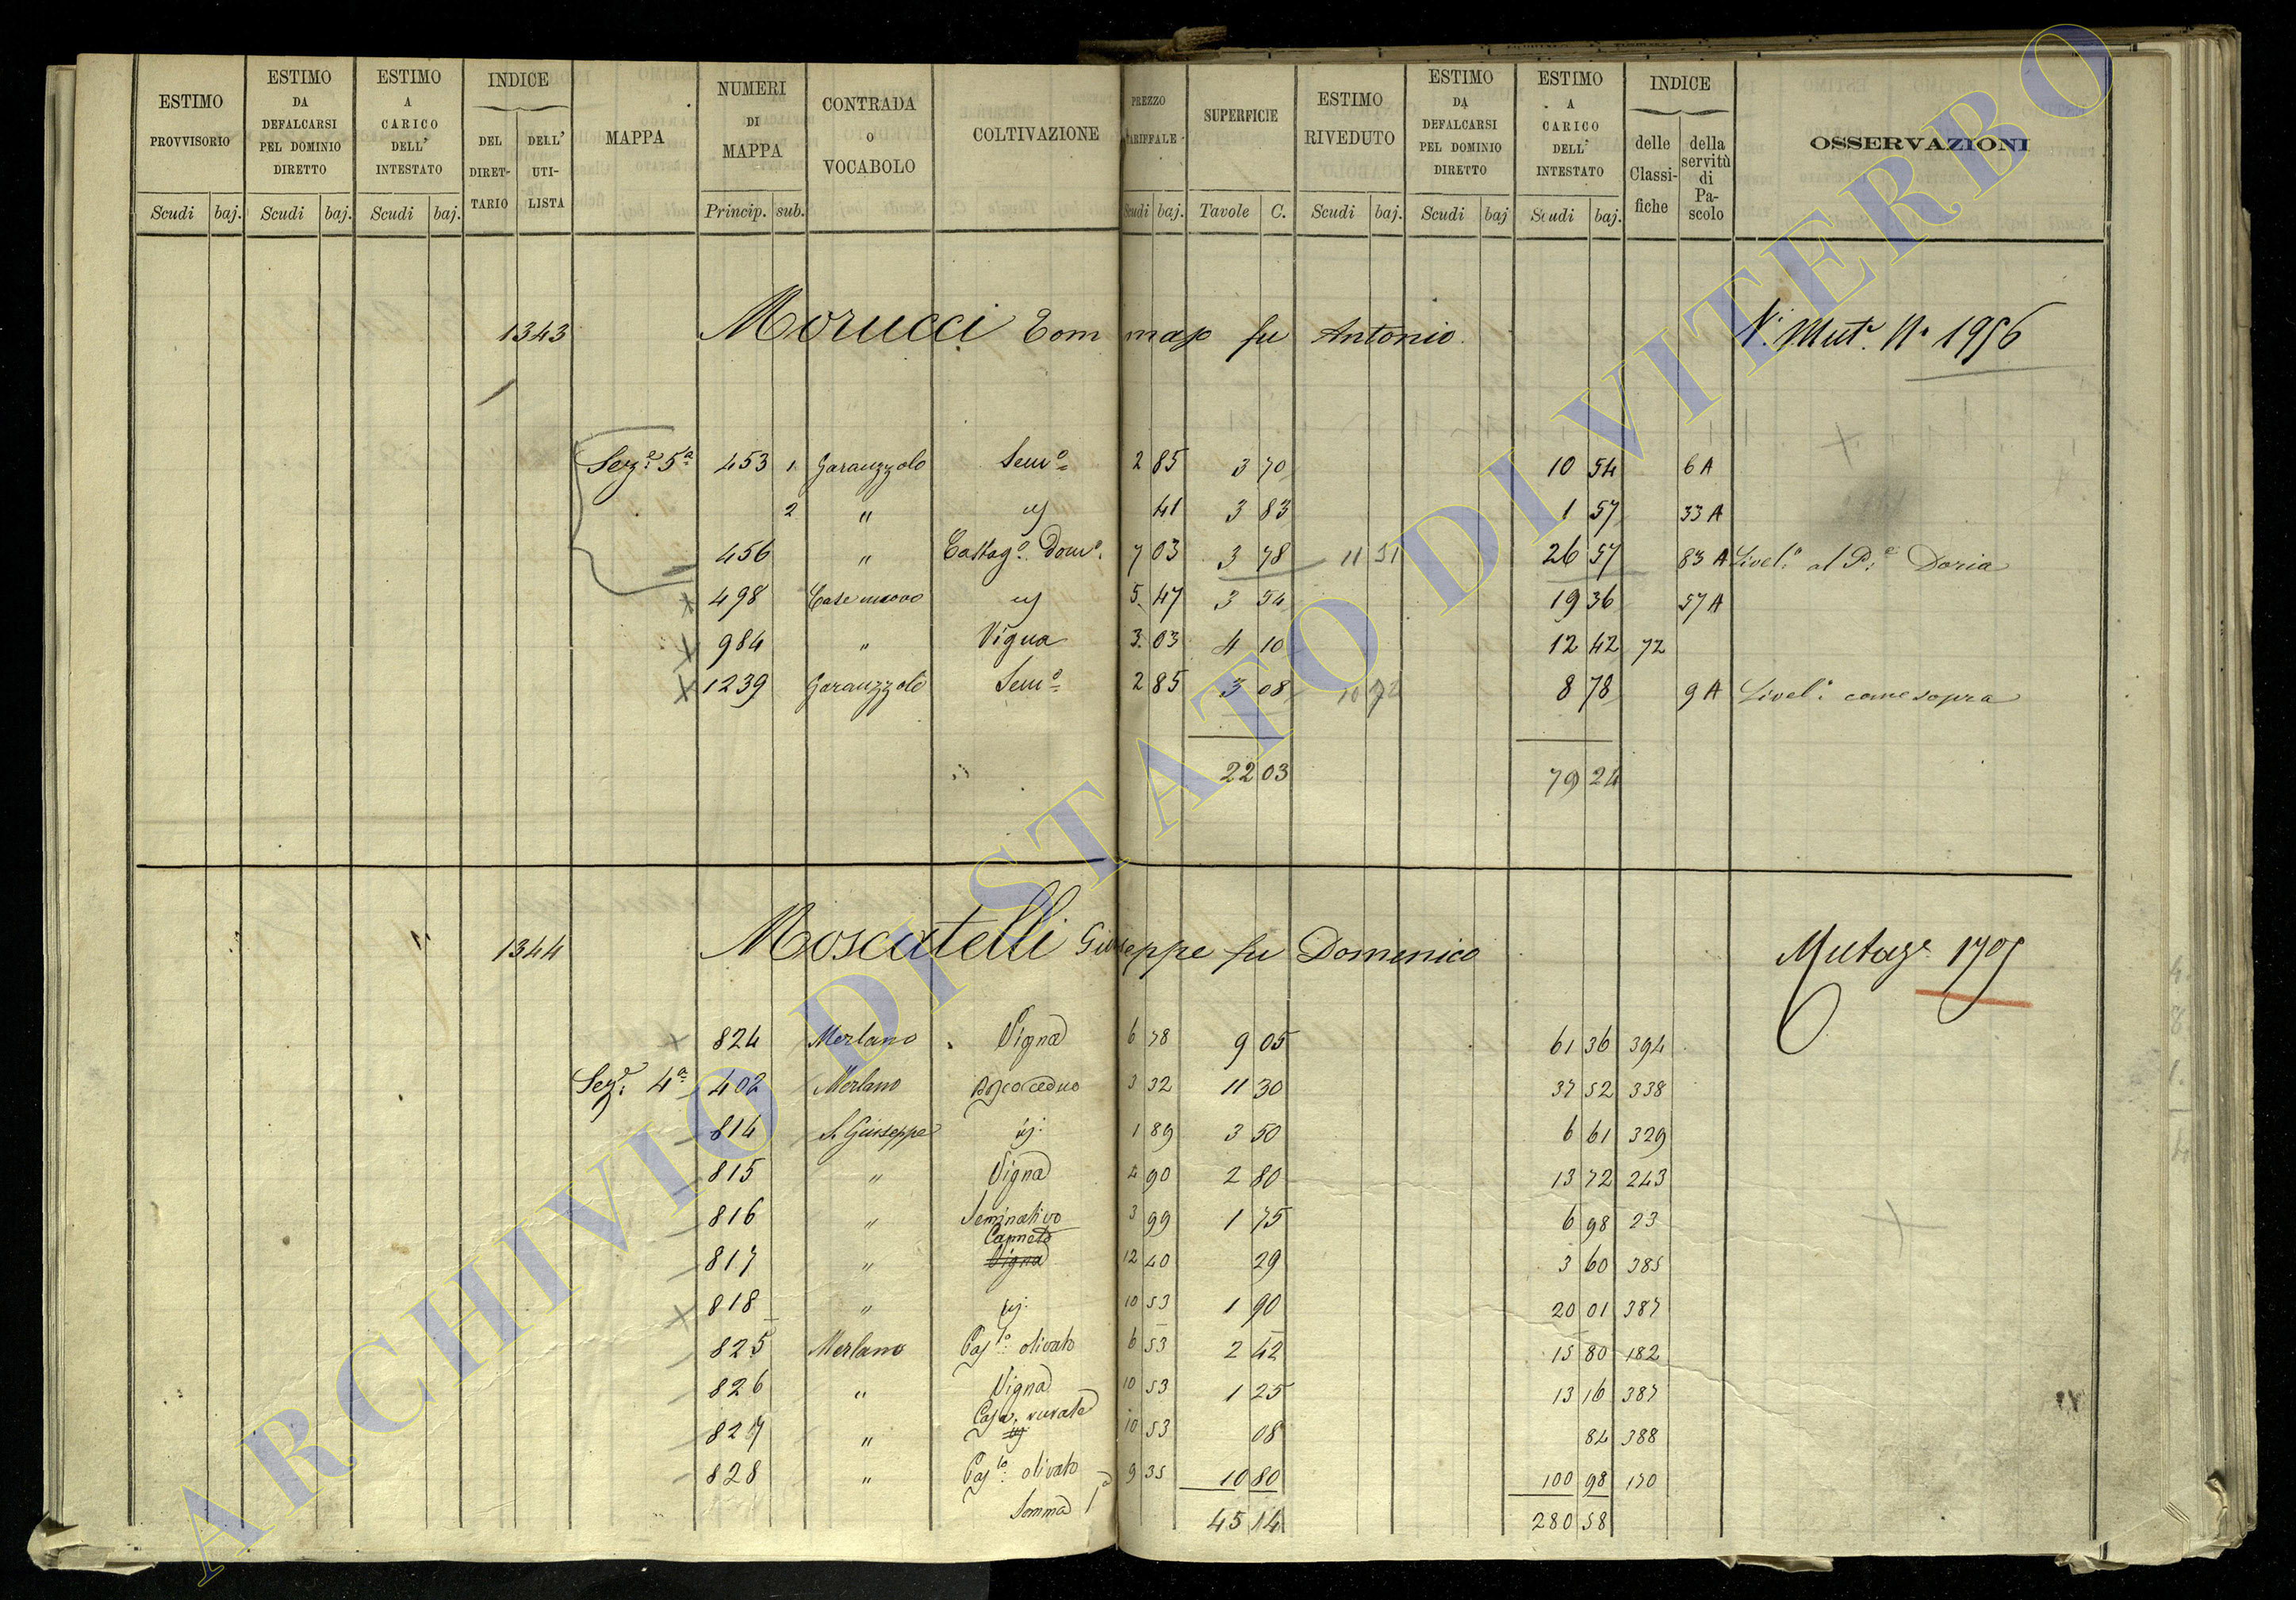 ESTIMO PROVVISORIO Scudi baj.
ESTIMO DA DEFALCARSI PEL DOMINIO DIRETTO Scudi baj.
ESTIMO A CARICO DELL' INTESTATO Scudi baj.
INDICE DEL DIRET-TARIO DELL' UTI-LISTA
MAPPA
NUMERI DI MAPPA Princip. sub.
CONTRADA O VOCABOLO
COLTIVAZIONE
PREZZO TARIFFALE Scudi baj.
SUPERFICIE Tavole C.
ESTIMO RIVEDUTO Scudi baj.
ESTIMO DA DEFALCARSI PEL DOMINIO DIRETTO Scudi baj
ESTIMO A CARICO DELL' INTESTATO Scudi baj.
INDICE delle Classi-fiche della servitù di Pa-scolo
OSSERVAZIONI
1343 Morucci Tommaso fu Antonio N. Mut. N. 1956
Sez.e 5a 453 1 Garanzzolo Sem.o 2 85 3 70 10 54 6 A
2 " 41 3 83 1 57 33 A
456 " Castag.o Dom.o 7 03 3 78 11 51 26 57 83 A Livel.o al P.e Doria
498 Case nuovo 5 47 3 54 19 36 57 A
984 " Vigna 3 03 4 10 12 42 72
1239 Garanzzolo Sem.o 2 85 3 08 10 72 8 78 9 A Livel.o come sopra
22 03 79 24
1344 Moscatelli Giuseppe fu Domenico Mutaz.e 1705
824 Merlano Vigna 6 78 9 05 61 36 394
Sez.e 4a 402 Merlano Bosco ceduo 3 32 11 30 37 52 338
814 S. Giuseppe 1 89 3 50 6 61 329
815 " Vigna 4 90 2 80 13 72 243
816 " Seminativo 3 99 1 75 6 98 23
Canneto
817 " Vigna 12 40 29 3 60 385
818 " 10 53 1 90 20 01 387
825 Merlano Pas.lo olivato 6 53 2 42 15 80 182
826 " Vigna 10 53 1 25 13 16 387
Casa rurale
827 " 10 53 08 84 388
828 " Pas.lo olivato 9 35 10 80 100 98 170
Somma 45 14 280 58
ARCHIVIO DI STATO DI VITERBO